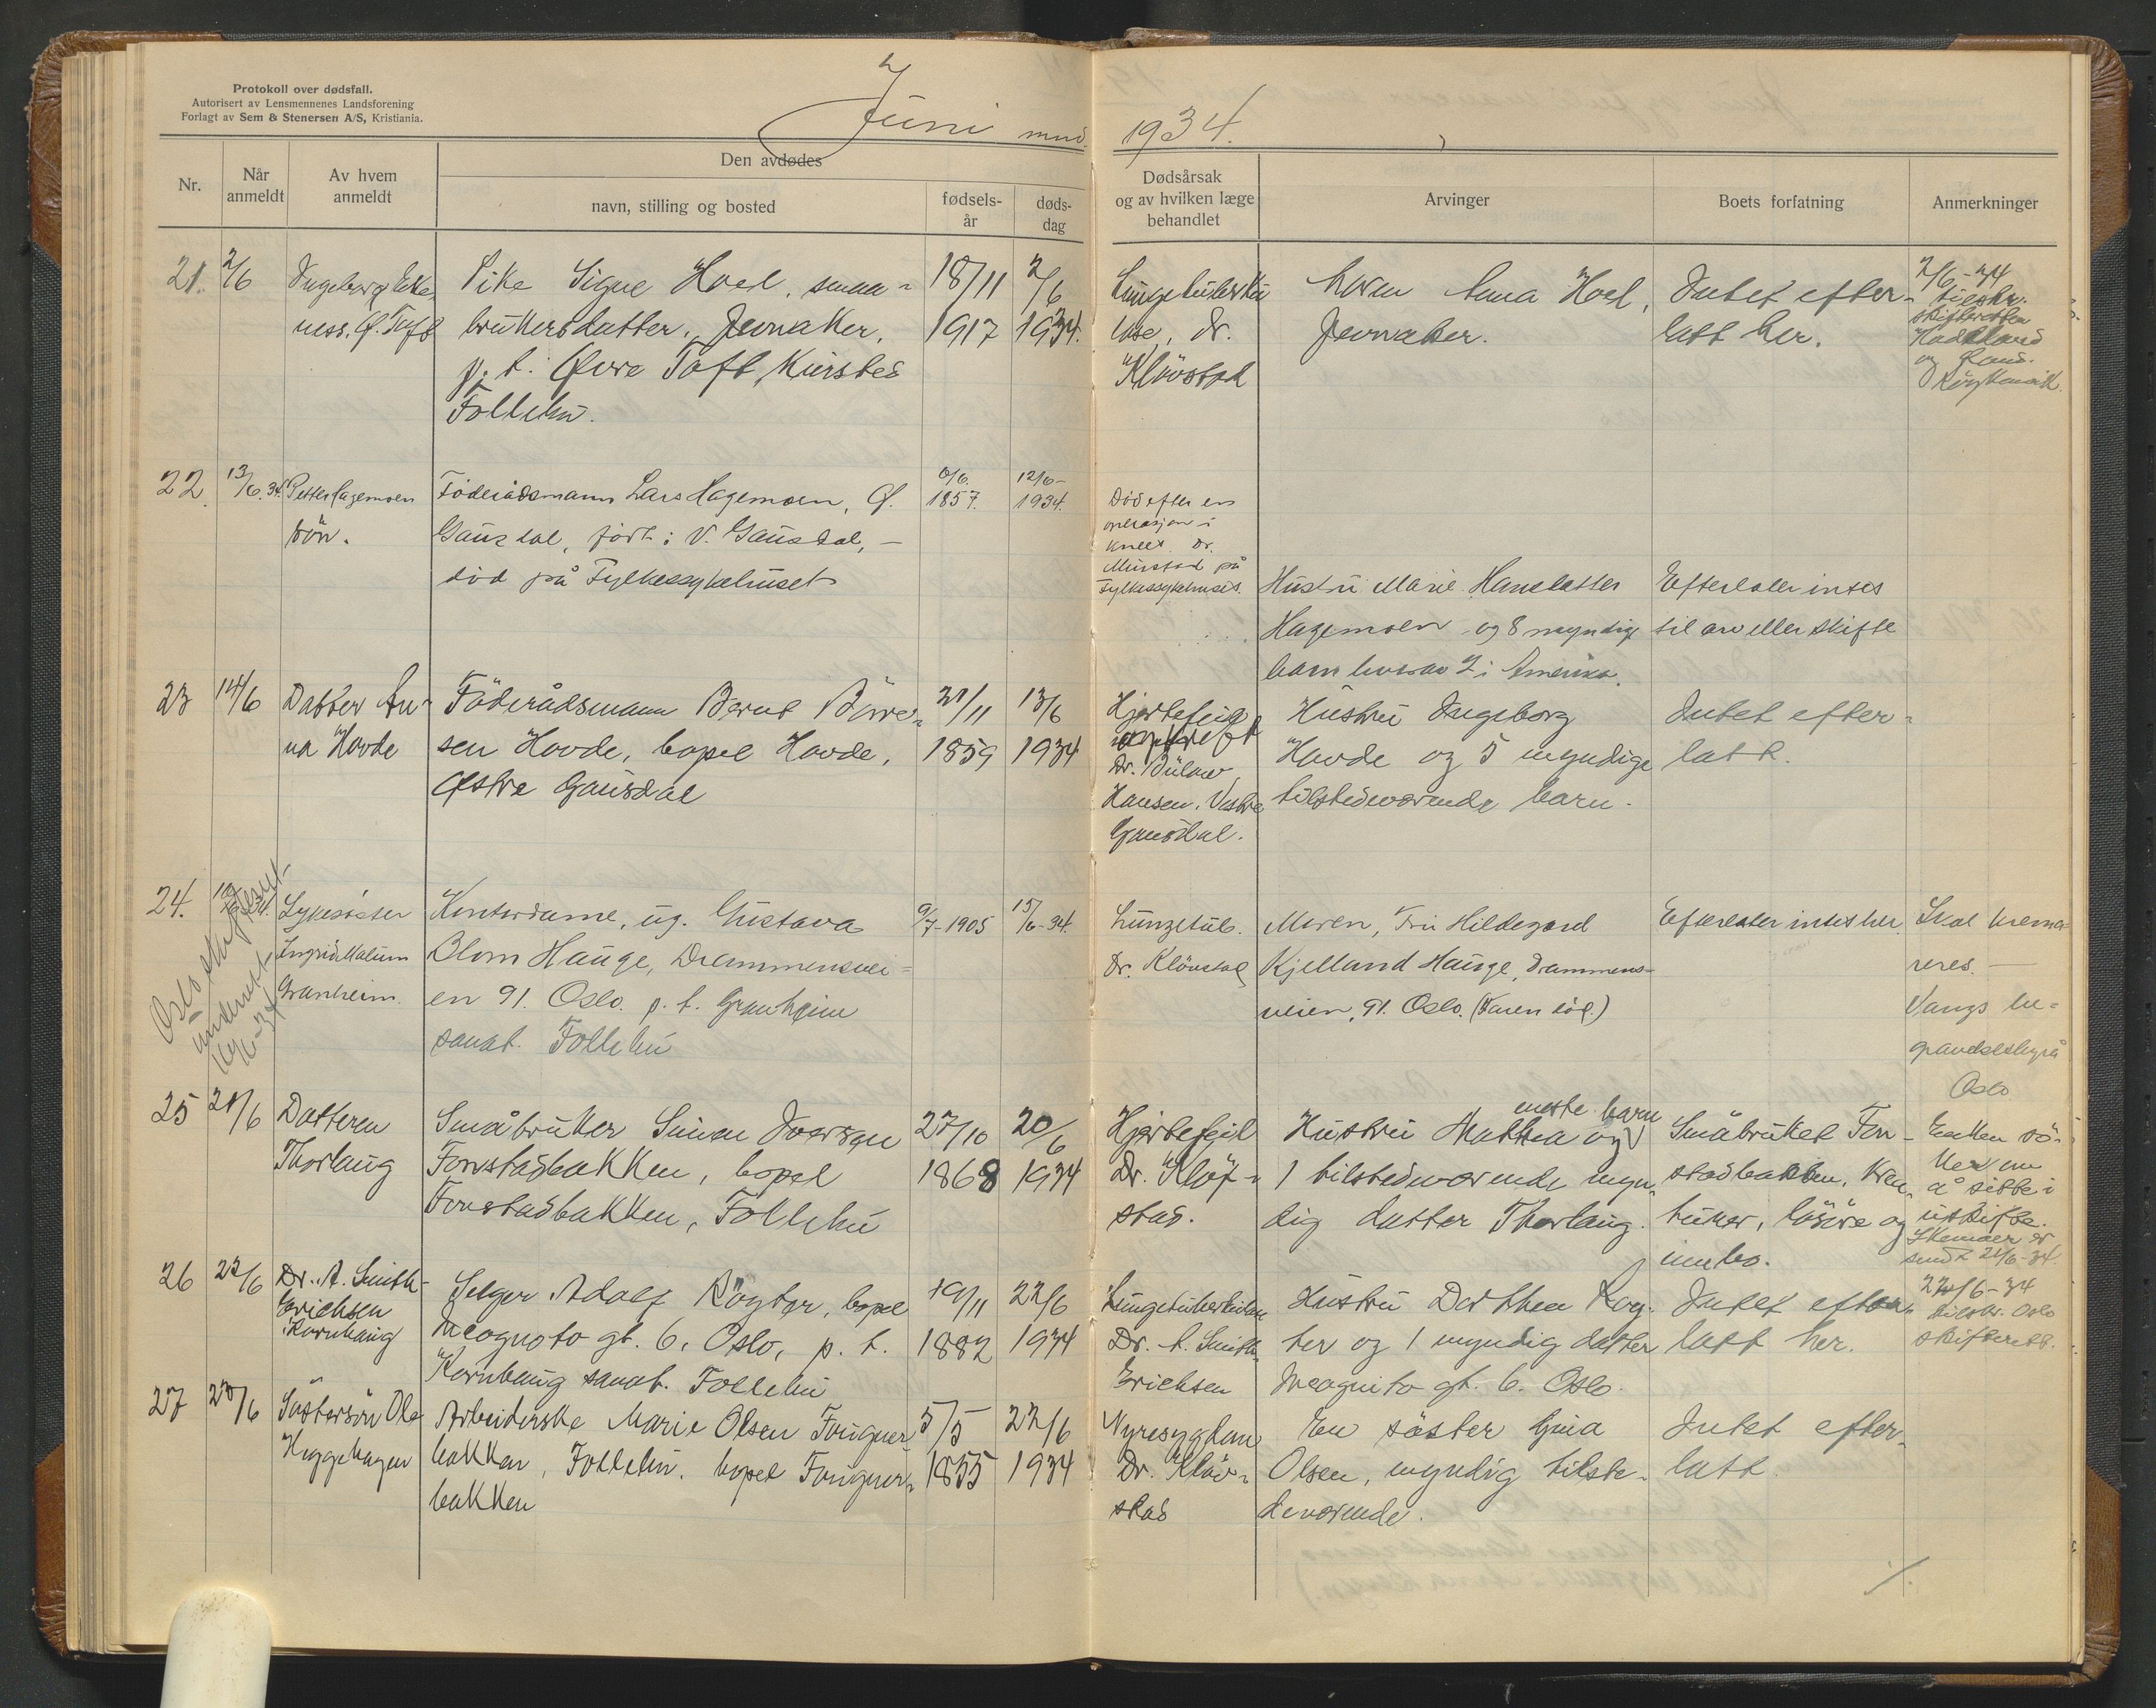 Protokoll over dødsfall.
Autorisert av Lensmennenes Landsforening
Forlagt av Sem & Stenersen A/S, Kristiania.
Juni mnd.
1934.
Nr.
Når anmeldt
Av hvem anmeldt
Den avdødes
navn, stilling og bosted
fødsels-
år
døds-
dag
Dødsårsak
og av hvilken læge
behandlet
Arvinger
Boets forfatning
Anmerkninger
21.
2/6
Ingeborg
ness. Ø. Toft
Pike Signe Hoel, smaa-
brukersdatter, Jevnaker,
p.t. Øvre Toft Kursted
Follebu.
18/11
1917
2/6
1934.
Lungetuberku
lose, Dr.
Klövstad
Moren Anna Hoel,
Jevnaker.
Intet efter-
latt her.
2/6-34
tilskr.
skifteretten
Hadeland
og Land.
22.
13/6.34.
Petter Hagemoen
sön.
Föderådsmann Lars Hagemoen, Ø.
Gausdal, födt i V. Gausdal, -
död på Fylkessykehuset
1857.
12/6-
1934.
Död efter en
operasjon i
kneet. Dr.
Mustad på
Fylkessykehuset.
Hustru Marie Hansdatter
Hagemoen og 8 myndige
barn hvorav 2 i Amerika.
Efterlater intet
til arv eller skifte
23
14/6
Datter An-
na Hovde
Föderådsmann Bernt Börre-
sen Hovde, bopel Hovde,
Østre Gausdal
21/11
1859
13/6
1934
Hjertefeil
Dr. Bülow
Hansen. Vestre
Gausdal.
Hustru Ingeborg
Hovde og 5 myndige
tilstedeværende barn.
Intet efter-
latt.
24.
Oslo skifterett
underrett
16/6-34
Sykesöster
Ingrid Malum
Granheim.
Kontordame, ug. Gustava
Blom Hauge, Drammensvei-
en 91. Oslo. p.t. Granheim
sanat. Follebu
9/7-1905
15/6-34.
Lungetub.
Dr. Klövstad
Moren, Fru Hildegard
Kjelland Hauge, Drammens-
veien, 91. Oslo. (Faren död.)
Efterlater intet her
Skal kreme-
reres. -
Vangs be-
gravelsesbyrå
Oslo
25
21/6
Datteren
Thorlaug
Småbruker Simen Iversen
Fonstadbakken, bopel
Fonstadbakken, Follebu
27/10
1868
20/6
1934
Hjertefeil
Dr. Klöf-
stad.
eneste barn
Hustru Mathea og
1 tilstedeværende myn-
dig datter Thorlaug.
Småbruket Fon-
stadbakken, krea-
turer, lösöre og
innbo.
Enken sö-
ker om
å sitte i
uskifte.
Skemaer er
sendt 21/6-34.
26
22/6
Dr. A. Smith-
Erichsen
Kornhaug
Selger Adolf Rögter, bopel
Incognoto gt. 6, Oslo, p.t.
Kornhaug sanat. Follebu
19/11
1882
22/6
1934
Lungetuberkulose
Dr. A. Smith
Erichsen
Hustru Dorthea Rög-
ter og 1 myndig datter
Incognito gt. 6. Oslo.
Intet efter-
latt her.
22/6-34
tilskr. Oslo
skifterett.
27
Sösterson Ole
Heggehagen
Arbeiderske Marie Olsen Fougner-
bakken, Follebu. bopel Fougner-
bakken
5/5
1855
22/6
1934
Nyresygdom
Dr. Klöv-
stad
En söster Guia
Olsen, myndig tilste-
deværende.
Intet efter-
latt.